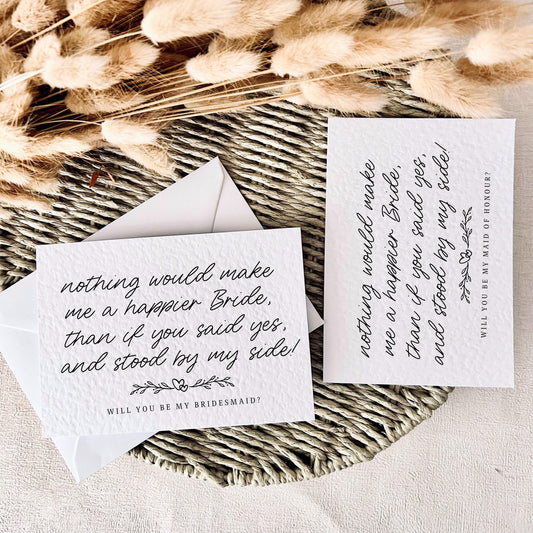 nothing would make
me a happier Bride,
than if you said yes,
and stood by my side!
WILL YOU BE MY BRIDESMAID?
nothing would make
me a happier Bride,
than if you said yes,
and stood by my side!
WILL YOU BE MY MAID OF HONOUR?